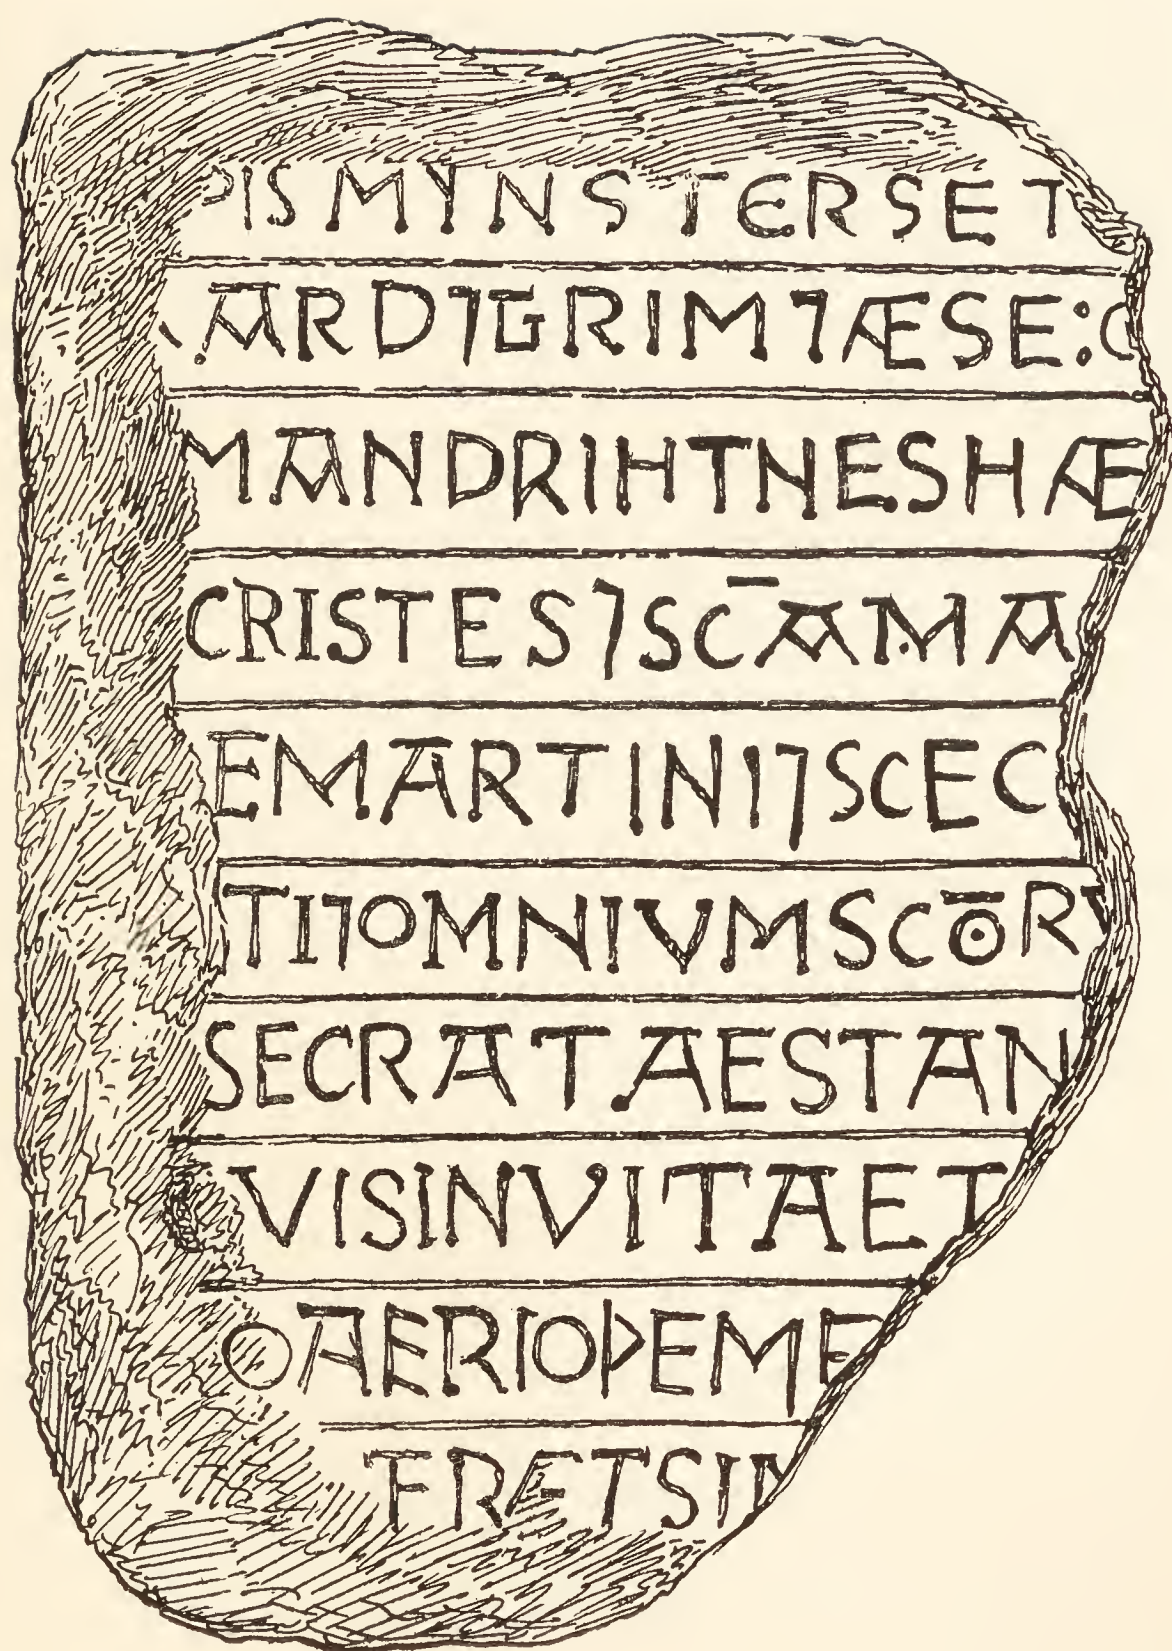 ÞIS MYNSTER SET
ARD⁊GRIM⁊ÆSE:O
MANDRIHTNESHÆ
CRISTES⁊SC̄AMA
EMARTINI⁊SCEC
TI⁊OMNIVMSCŌRV
SECRATAESTAN
VISINVITAET
OAERIOÞEME
FRETSIN